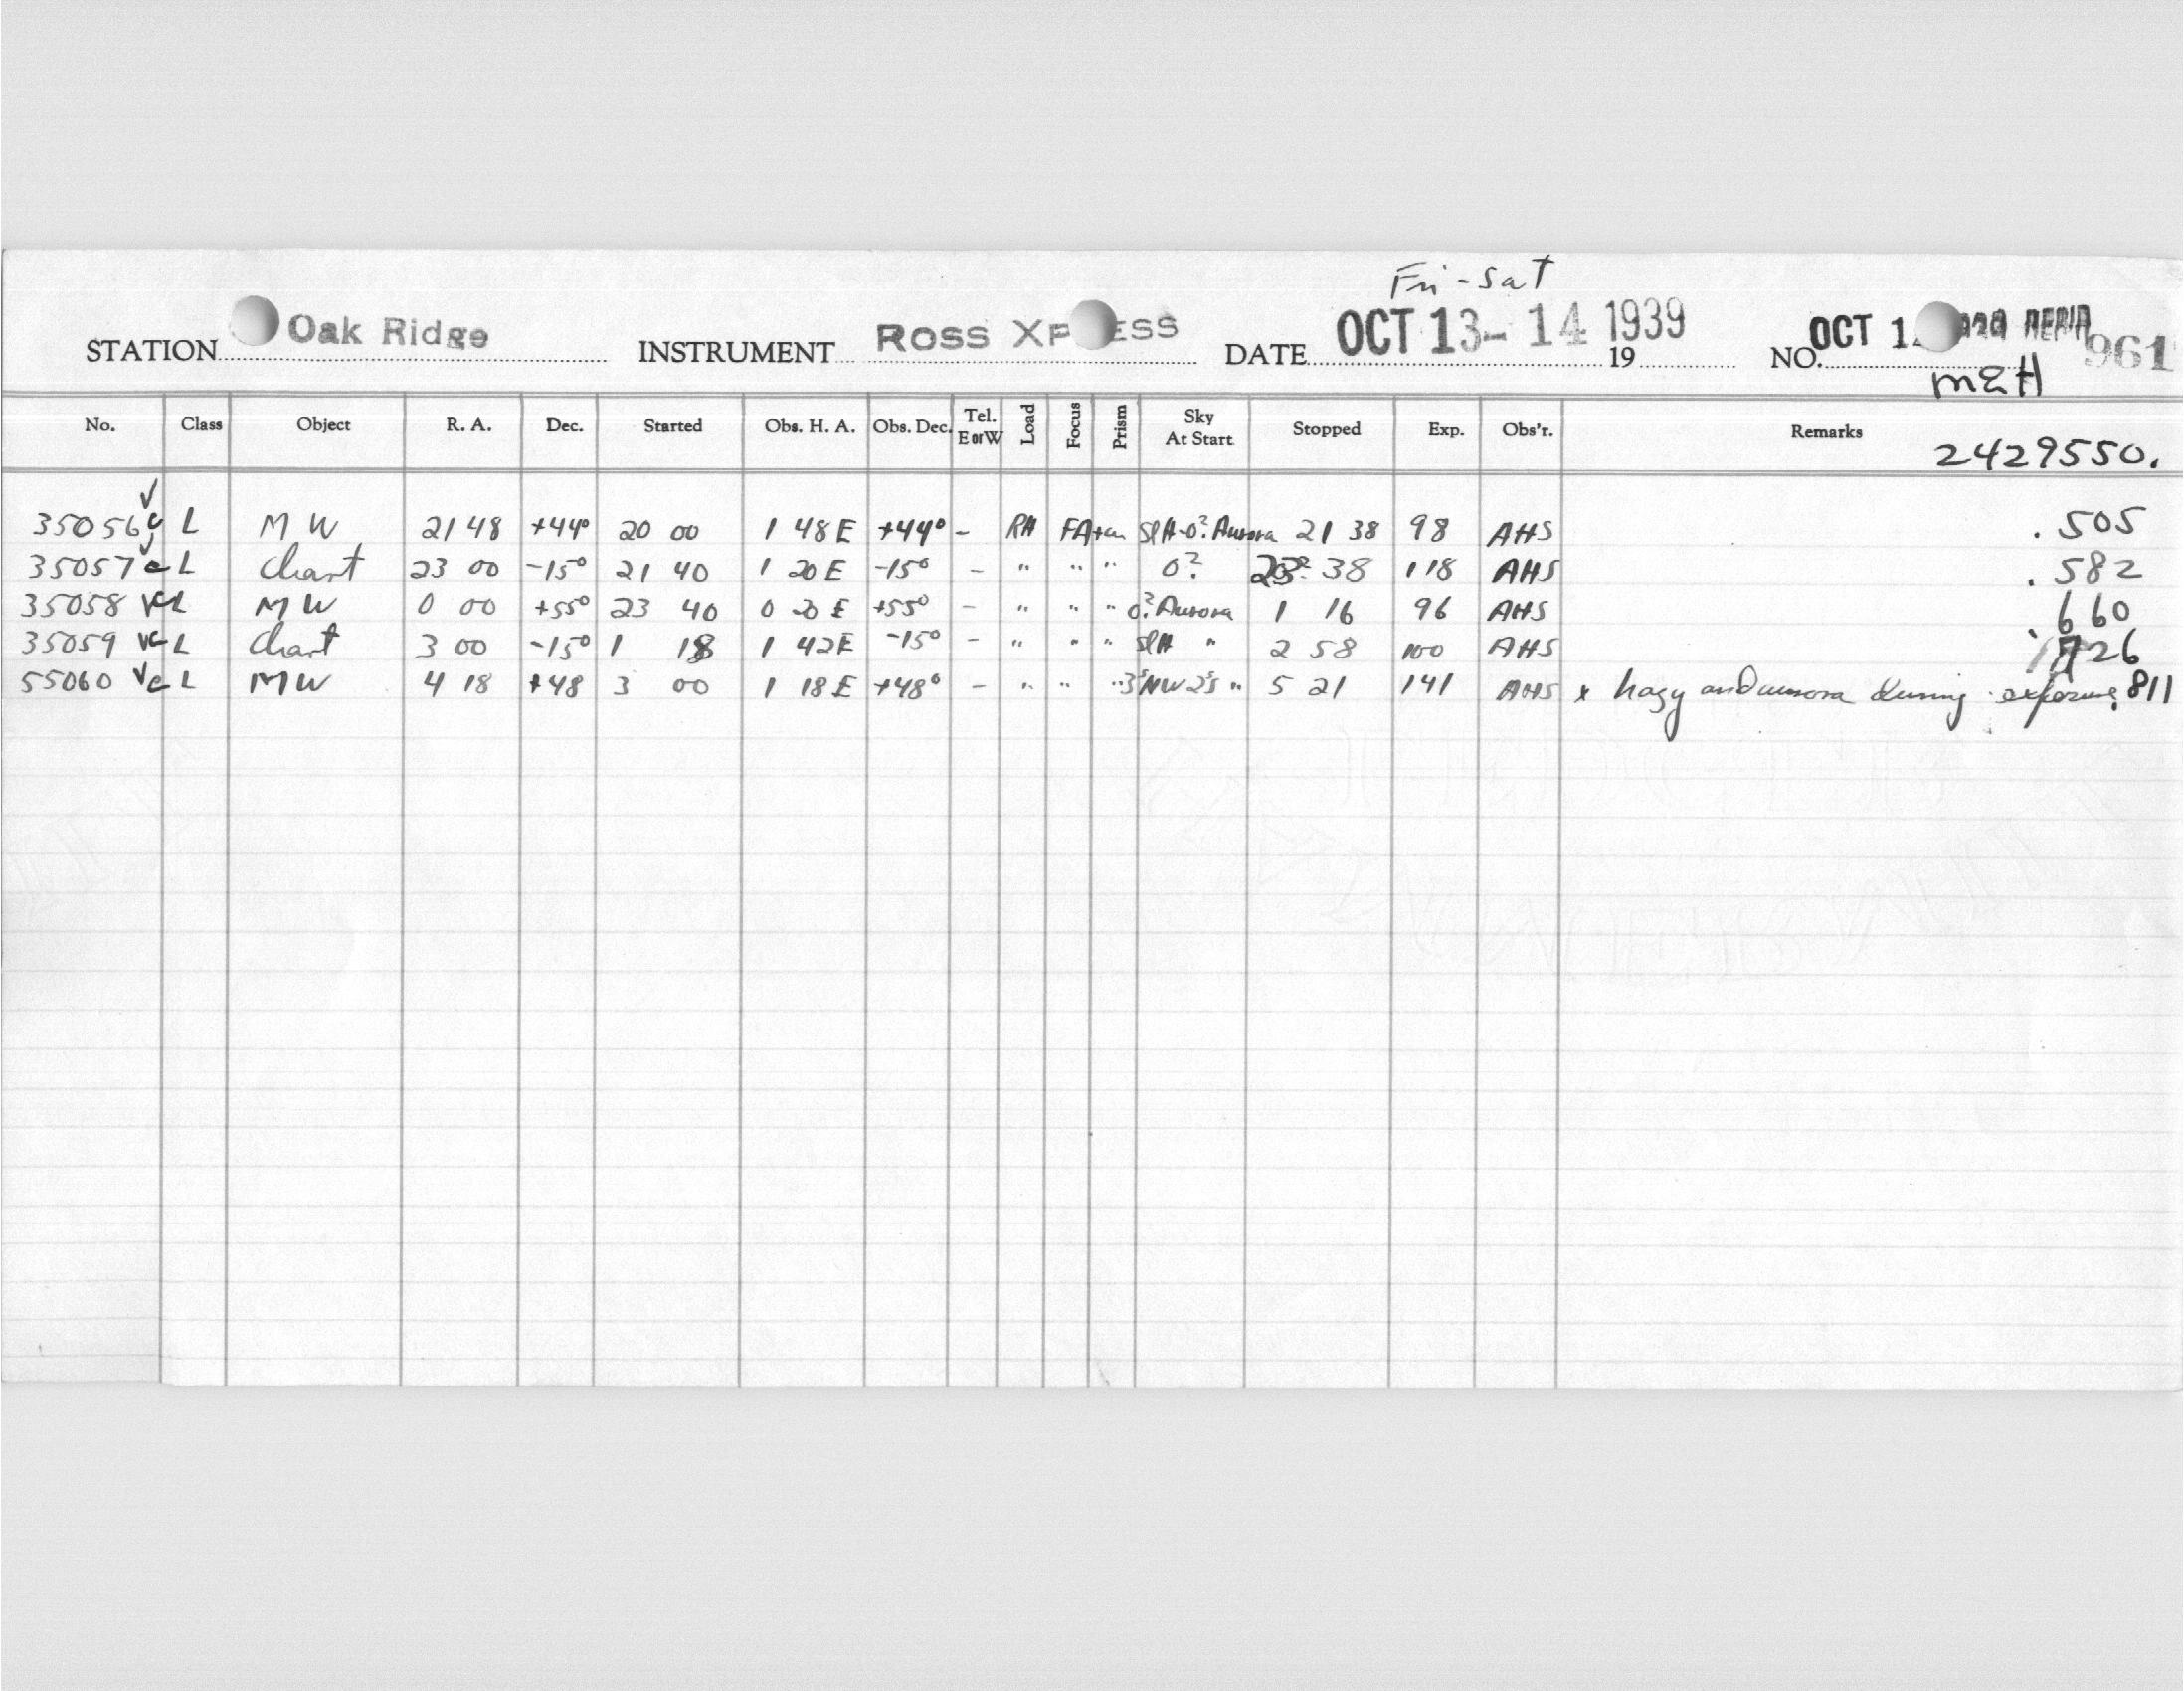 Fri - Sat
STATION Oak Ridge INSTRUMENT ROSS XPRESS DATE OCT 13-14 1939 19 NO. OCT 961
M&H
No. Class Object R. A. Dec. Started Obs. H. A. Obs. Dec. Tel. E or W Load Focus Prism Sky At Start Stopped Exp. Obs'r. Remarks
2429550.
35056 c L M W 21 48 +44° 20 00 1 48 E +44° - RH FA SlH-0? Aurora 21 38 98 AHS .505
35057 c L Chart 23 00 -15° 21 40 1 20 E -15° - " " " 0? 23 38 118 AHS .582
35058 c L M W 0 00 +55° 23 40 0 20 E +55° - " " " 0? Aurora 1 16 96 AHS .660
35059 c L Chart 3 00 -15° 1 18 1 42E -15° - " " " SlH " 2 58 100 AHS .726
55060 c L M W 4 18 +48 3 00 1 18 E +48° - " " " NW " 5 21 141 AHS x hazy and aurora during exposure .811